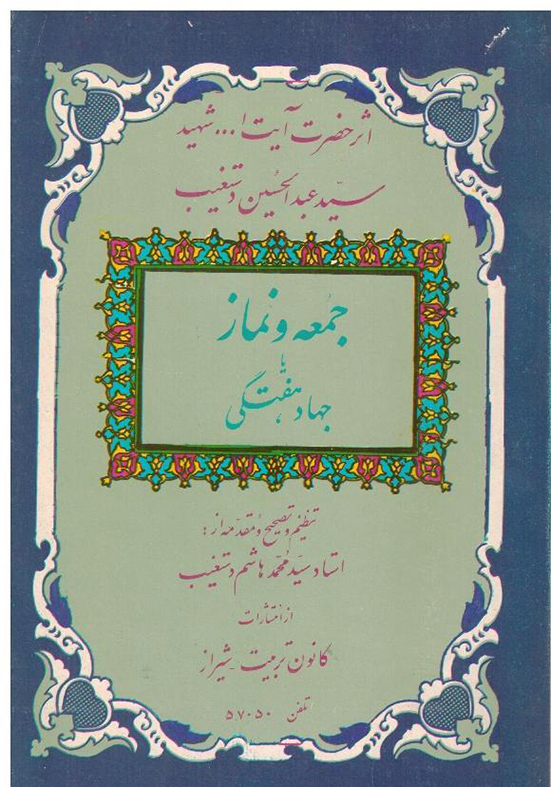 اثر حضرت آیت ا... شهید
سید عبدالحسین دستغیب
جمعه و نماز
یا
جهاد هفتگی
تنظیم و تصحیح و مقدمه از:
استاد سید محمد هاشم دستغیب
از انتشارات
کانون تربیت شیراز
تلفن ۵۷۰۵۰